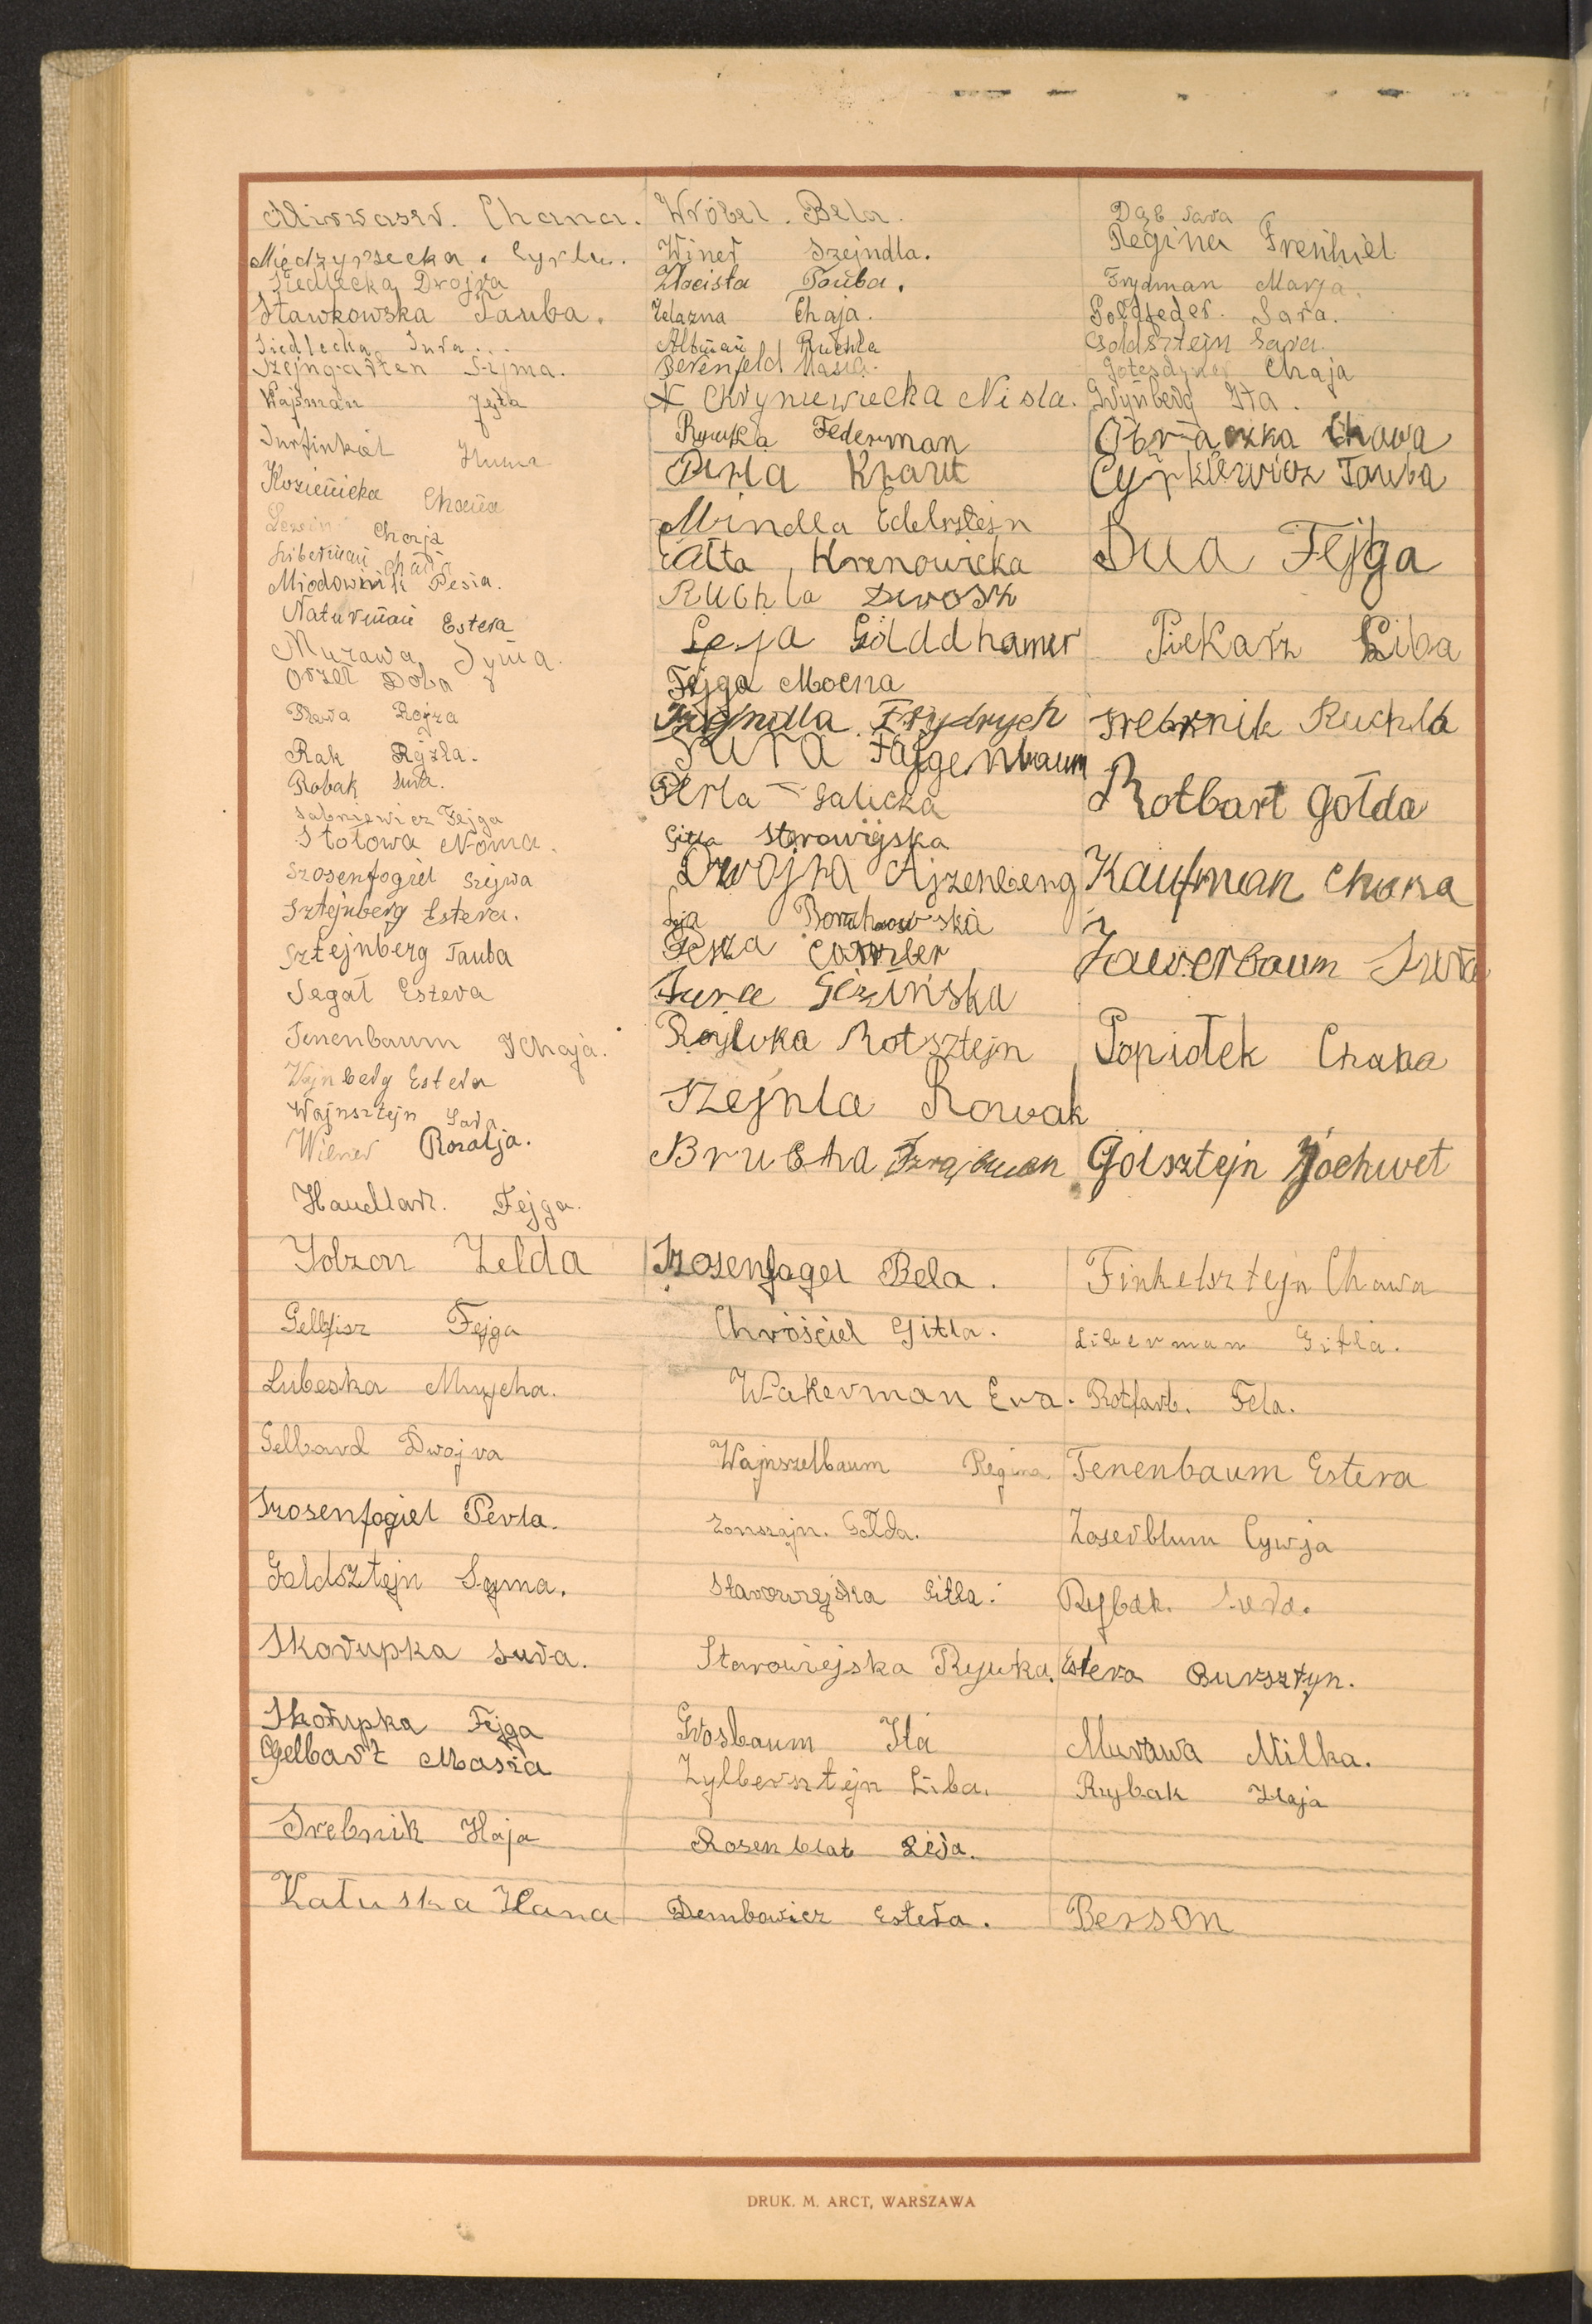 Mirwaser. Chana.
Międzyrzecka. Cyrla.
Siedlecka Drojra
Stawkowska Tauba.
Siedlecka Sura..
Szejngarten Syma.
Kajsman Jęta
Surfinkiel
Kozienicka Chana
Lewin Chaja
Liberman Chana
Miodownik Pesia.
Naturman Estera
Murawa Syma.
Orzeł Doba
Rojza
Rak Rojzla.
Robak Sura.
Sabniewicz Fejga
Stołowa Noma.
Szosenfogiel Szejwa
Sztejnberg Estera.
Sztejnberg Tauba
Segał Estera
Tenenbaum Ichaja.
Wajnberg Estera
Wajnsztejn Sara
Wiener Rozalja.
Handlarz. Fejga.
Jobzon Zelda
Gelbfisz Fejga
Lubeska Mnycha.
Gelbard Dwojra
Szosenfogiel Perla.
Goldsztejn Syma.
Skorupka Sura.
Skorupka Fejga
Gelbart Masia
Srebnik Haja
Katuska Hana
Wróbel. Bela.
Winer Szejndla.
Złocista Tauba.
Żelazna Chaja.
Altman Ruchla
Berenfeld Masia.
x Chryniewiecka Nisla.
Rywka Federman
Perla Kraut
Mindla Edelsztejn
Etta Krenowicka
Ruchla Dwosk
Leja Golddhamer
Fejga Mocna
Szejndla Frydrych
Sura Fajgenbaum
Perla - Galicka
Gitla Starowijska
Dwojra Ajzenberg
Leja Borzchowska
Pesza
Sura Gézińska
Rojlwka Rotsztejn
Szejnla Rowak
Brucha Frajman
Szosenfogel Bela.
Chrościel Gitla.
Wakerman Ewa.
Wajnszelbaum Regina.
Zonszajn. Gołda.
Starowiejska Gitla.
Starowiejska Rywka.
Grosbaum Ita
Zylbersztejn Liba.
Rosenblat Leja.
Dembowicz Estera.
Dąb Sara
Regina Frenkiel
Frydman Marja.
Goldfeder. Sara.
Goldsztejn Sara.
Gotesdyner Chaja
Grynberg Ita.
Obrączka Chawa
Cyrkiewicz Tauba
Dua Fejga
Piekarz Liba
Srebrnik Ruchla
Rotbart Gołda
Kaufman Chana
Zawerbaum Sura
Popiołek Chana
Golsztejn Jochwet
Finkelsztejn Chawa
Liberman Gitla.
Rotfarb. Fela.
Tenenbaum Estera
Zaserblum Cywja
Rybak. Sura.
Estera Bursztyn.
Murawa Milka.
Rybak Haja
Berson
DRUK. M. ARCT, WARSZAWA